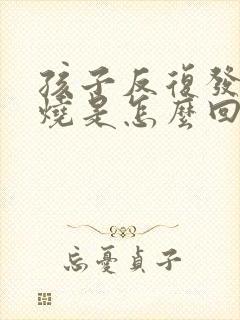 孩子反復發
燒是怎麼回
忘憂貞子